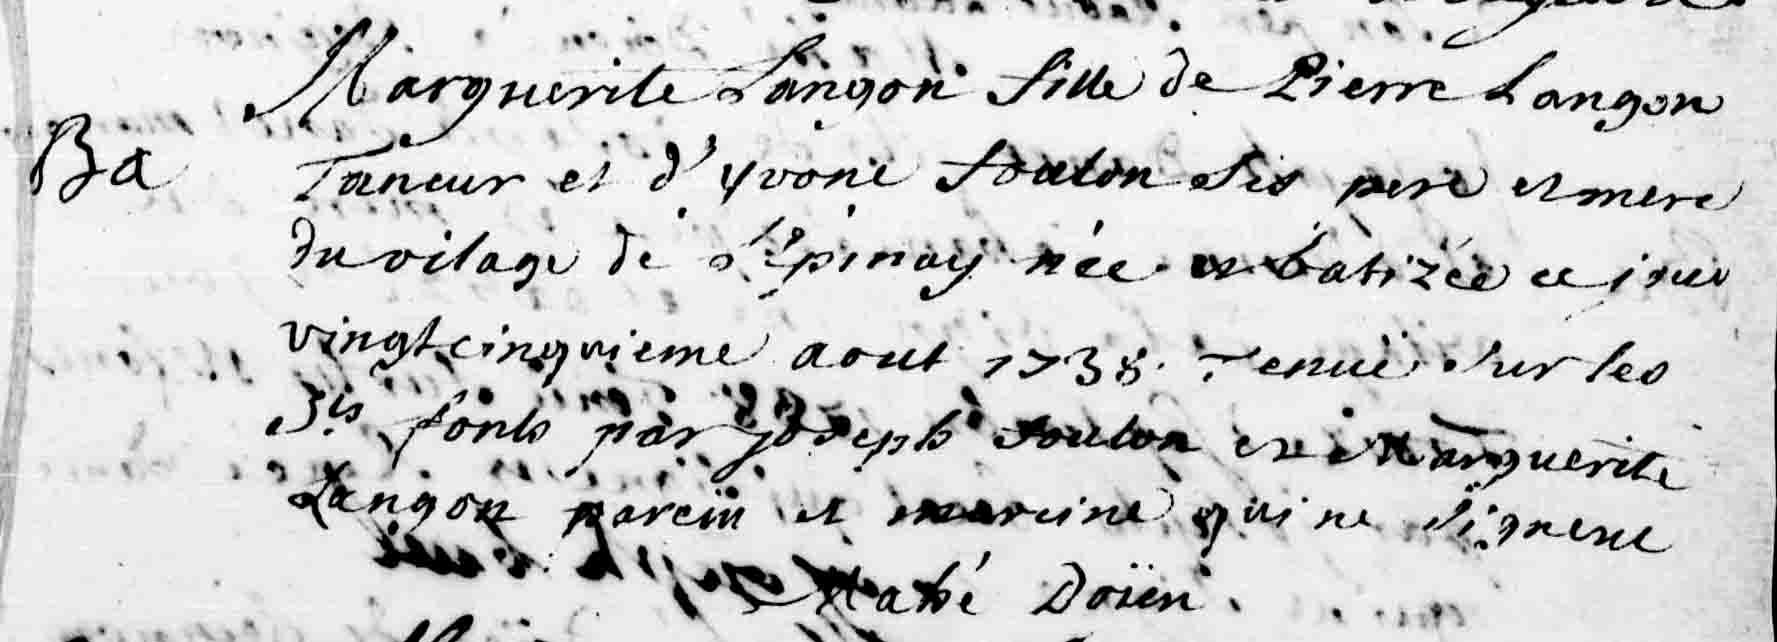 Marguerite Langon fille de Pierre Langon
Ba
Taneur et d'yvone foulon ses pere et mere
du vilage de l'épinay née et batizée ce jour
vingtcinquieme aout 1738. Tenuë sur les
Sts fonts par joseph foulon et Marguerite
Langon parein et mareine qui ne signent
Mahé Doïen.